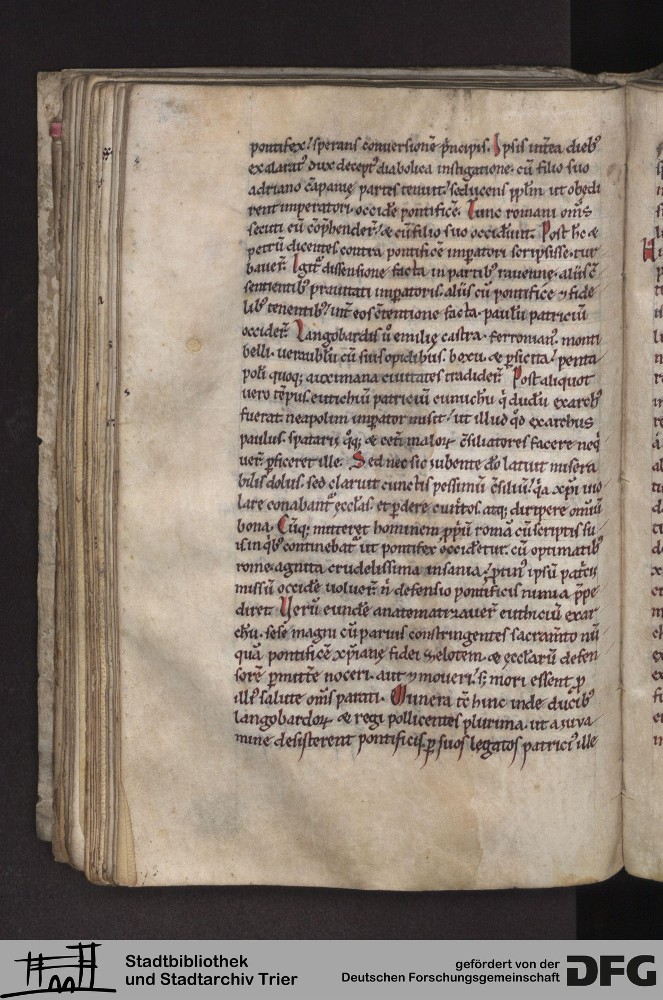 pontifex / sperans conuersionē p̄ncipis. Ipsis int̄ea diebꝰ
exalaratꝰ dux deceptꝰ diabolica instigatione. cū filio suo
adriano cāpanię partes tenuit / seducens pp̄lm ut obędi
rent imperatori. occidē pontificē. Tunc romani om̄s
secuti eū cōp̄hender̄ / & cū filio suo occidunt. Post hc &
petrū dicentes contra pontificē imp̄atori scripsisse. tur
bauer̄. Igit᷑ dissensione facta in partibꝰ rauenne. aliis c̄
sentientibꝰ prauitati imp̄atoris. aliis cū pontifice & fide
libꝰ tenentibꝰ / int̄ eos c̄tentione facta. paulū patriciū
occider̄. Langobardis ū emilię castra. ferronianꝰ. monti
belli. uerablū cū suis opidibus. boxu. & p̱siceta / penta
poli quoq; auximana ciuitates tradider̄. Post aliquot
uero tēpus. eutichiū patriciū eunuchū q̇ dudū exarchꝰ
fuerat. neapolim imp̄ator misit / ut illud qd̄ exarchus
paulus. spatariꝰ q̊q; & cet̄i maloꝝ c̄siliatores facere neq̇
uer̄. p̱ficeret ille. Sed nec sic iubente dō latuit misera
bilis dolus. sed claruit cunctis pessimū c̄siliū / q̇a xp̄i uio
lare conabant᷑ ęcclas̄. et p̱dere cunctos atq; diripere omniū
bona. Cūq; mitteret hominem p̱priū romā cū scriptis su
is in q̇bꝰ continebat᷑ ut pontifex occidetur. cū optimatibꝰ
rome. agnita crudelissima insania / ptinꝰ ipsū patricii
missū occidē uoluer̄. n̄ defensio pontificis nimia p̱pe
diret. Uerū eundē anatematizauer̄ euthiciū exar
chū. sese magni cū paruis constringentes sacram̄to nū
quā pontificē xp̄ianę fidei zelotem. & ęcclarū defen
sorē p̱mittē noceri. aut ammoueri / s; mori essent p̱
illiꝰ salute om̄s parati. Munera tc̄ hinc inde ducibꝰ
langobardoꝝ & regi pollicentes plurima. ut a iuua
mine desisterent pontificis. p̱ suos legatos patriciꝰ ille
Stadtbibliothek
und Stadtarchiv Trier
gefördert von der
Deutschen Forschungsgemeinschaft
DFG